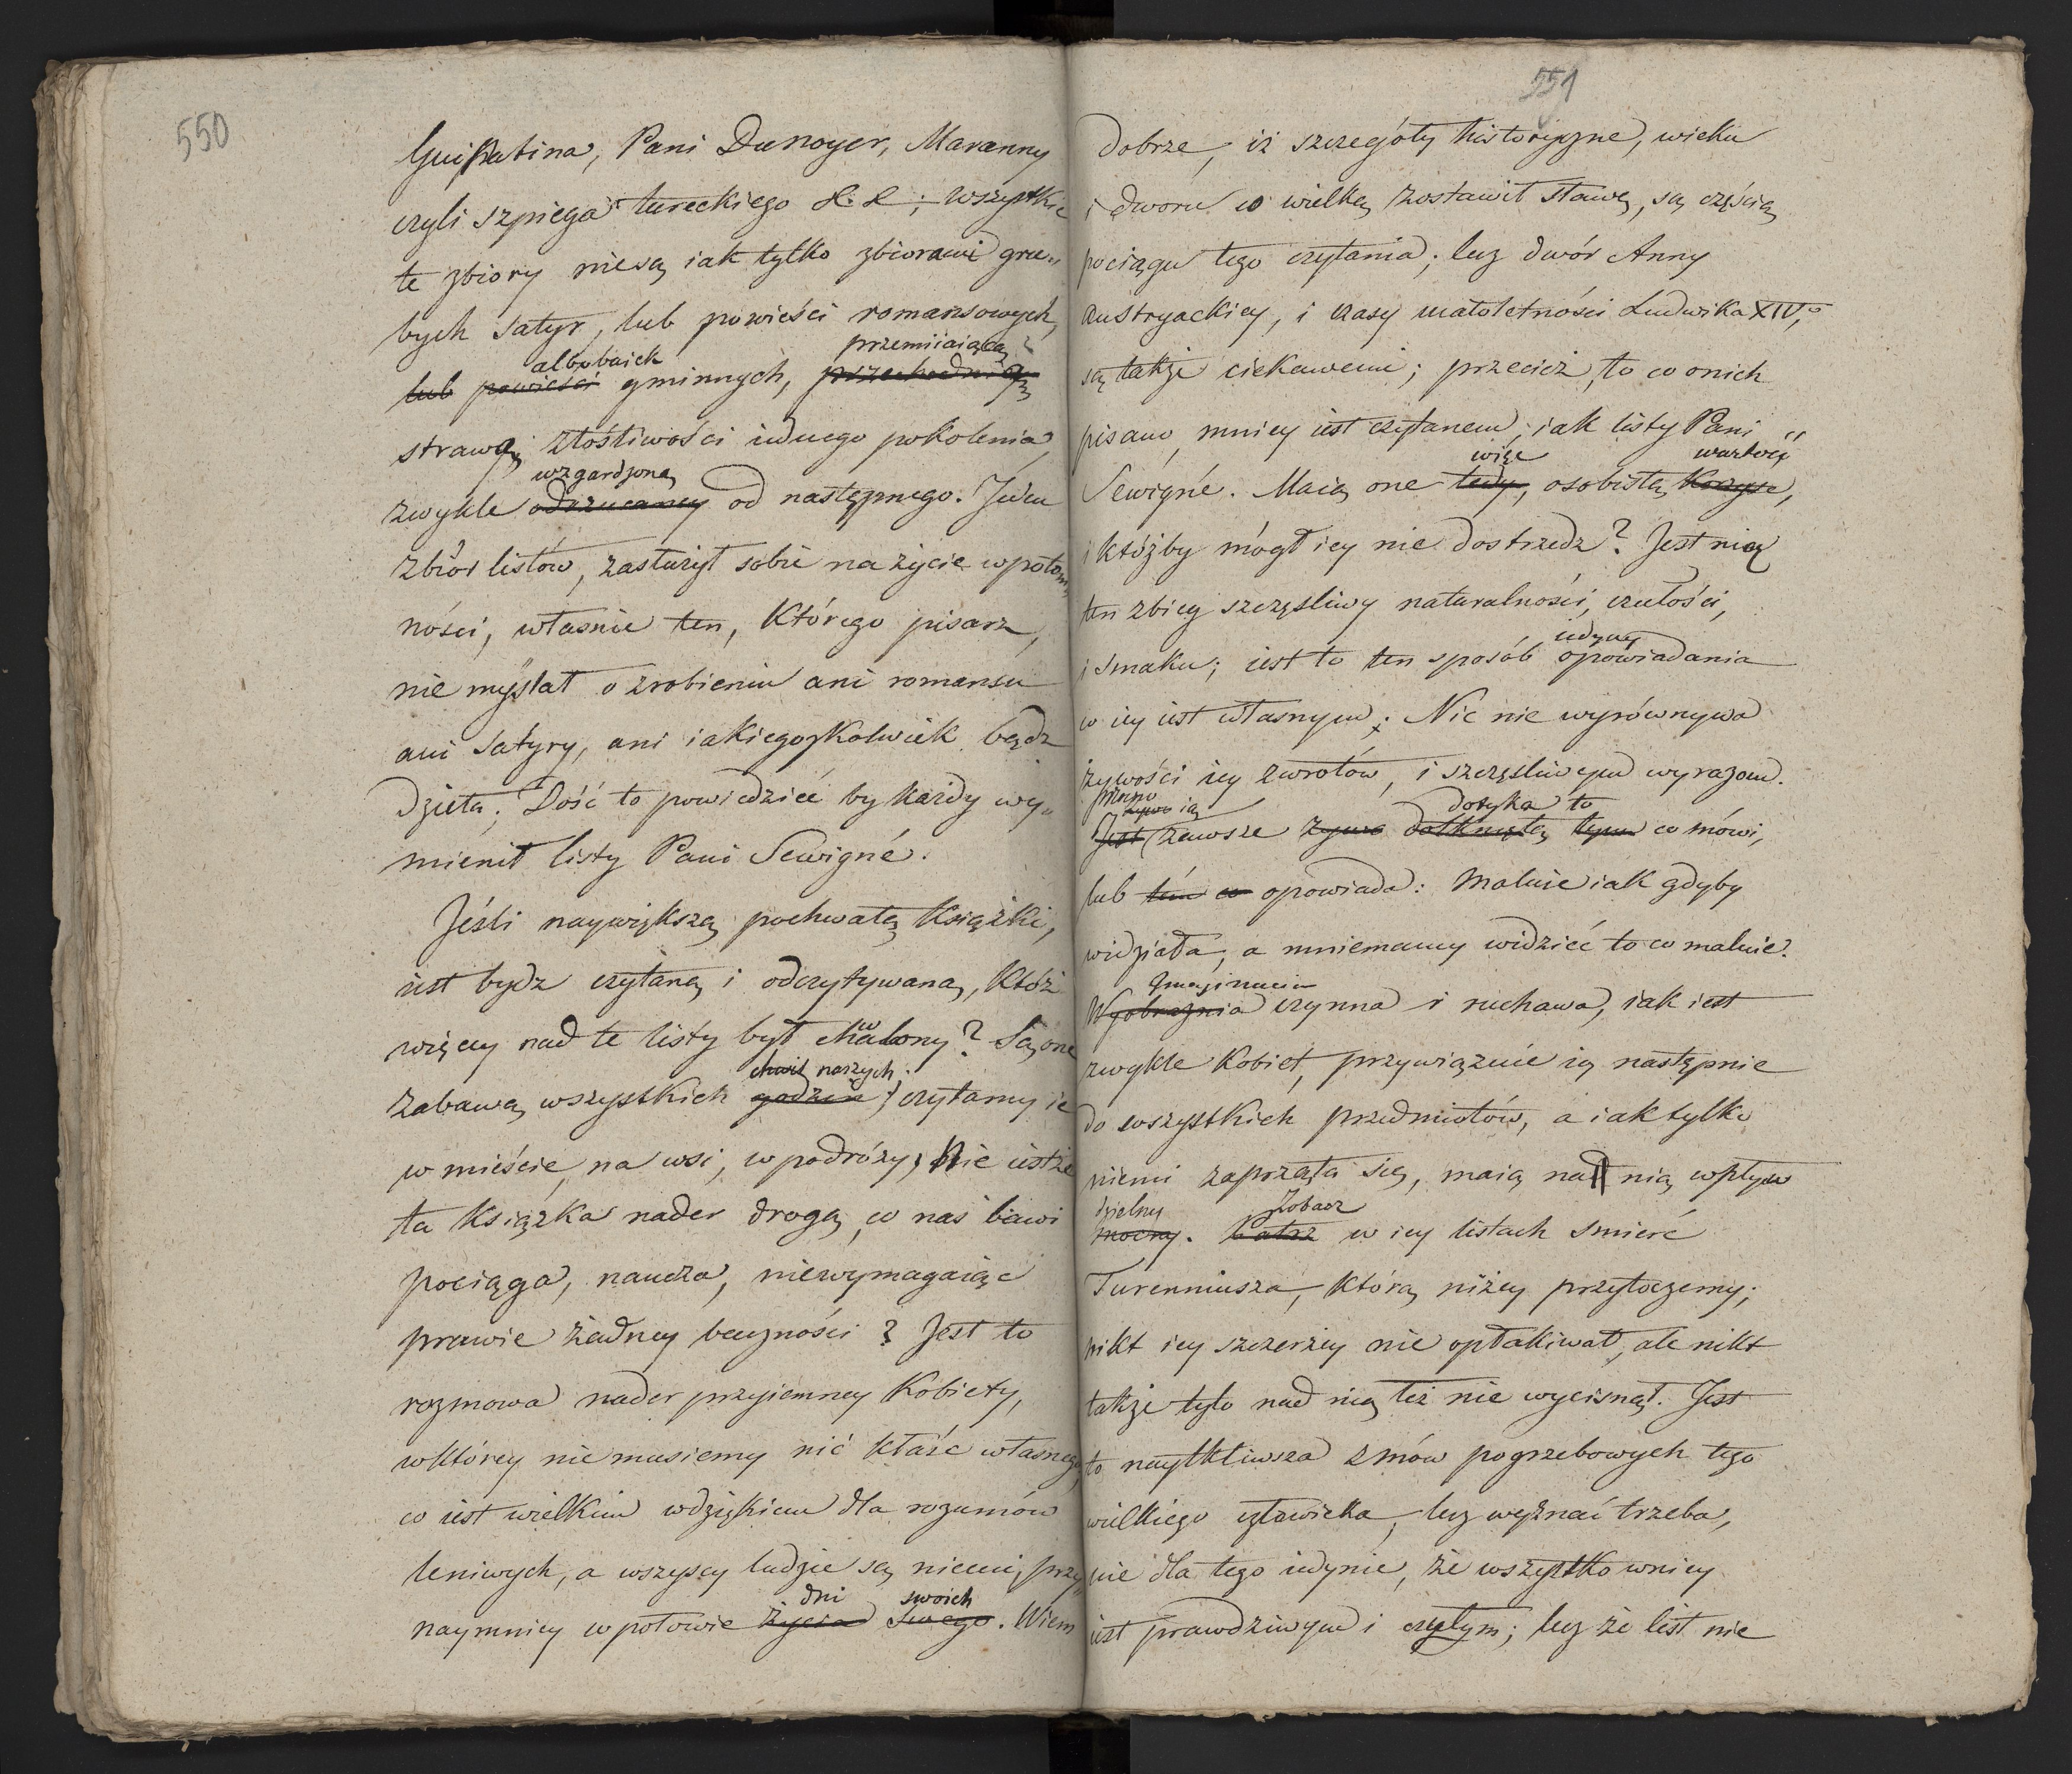 550
GuiPatina, Pani Dunoyer, Maranny
czyli szpiega tureckiego &. &; wszystkie
te zbiory niesą iak tylko zbiorami gru„
bych satyr, lub powieści romansowych,
albo baiek przemiiaiącą
lub powieści gminnych, przechodnią
strawą złośliwości iednego pokolenia,
wzgardzoną
zwykle odrzucaney od następnego. Jeden
zbiór listów, zasłużył sobie na życie w potom„
ności, własnie ten, którego pisarz,
nie myślał o zrobieniu ani romansu
ani satyry, ani iakiegożkolwiek bądz
dzieła. Dość to powiedzieć by każdy wy„
mienił listy Pani Sewigné.
Jeśli naywiększą pochwałą książki,
iest bydz czytaną i odczytywaną, któż
więcy nad te listy był chwalony? Są one
chwil naszych;
zabawą wszystkich godzin, czytamy ie
w mieście, na wsi, w podróży; Nie iestże
ta książka nader drogą, co nas bawi
pociąga, naucza, niewymagaiąc
prawie żadney baczności? Jest to
rozmowa nader przyiemney kobiety,
wktórey nie musiemy nic kłaśc własnego,
co iest wielkim wdziękiem dla rozumów
leniwych, a wszyscy ludzie są niemi, przy„
dni swoich
naymniey w połowie życia swego. Wiem
551
dobrze, iż szczegóły historyczne, wieku
i dworu co wielką zostawił sławę, są częścią
pociągu tego czytania; lecz dwór Anny
austryackiey, i czasy małoletności Ludwika XIV,o
są także ciekawemi; przecież, to co onich
pisano, mniey iest czytanem, iak listy Pani
więc wartość
Sewigné. Maią one tedy, osobistą korzyść,
i któżby mógł iey nie dostrzedz? Jest nią
ten zbieg szczęsliwy naturalności, czułości,
iedyny
i smaku; iest to ten sposób opowiadania
co iey iest własnym; Nic nie wyrównywa
żywości iey zwrotów, i szczęsliwym wyrazom.
żywo ią dotyka to
Jest zawsze żywo dotkniętą tym co mówi,
lub tém co opowiada: Maluie iak gdyby
widziała, a mniemamy widzieć to co maluie.
Imaginacia
Wyobraznia czynna i ruchawa, iak iest
zwykle kobiet, przywiązuie ią następnie
do wszystkich przedmiotów, a iak tylko
niemi zaprząta się, maią nad nią wpływ
dzielny Zobacz
mocny. Patrz w iey listach smierć
Turenniusza, którą niżey przytoczemy;
nikt iey szczerzey nie opłakiwał, ale nikt
także tylo nad nią łez nie wycisnął. Jest
to naytkliwsza z mów pogrzebowych tego
wielkiego człowieka, lecz wyznać trzeba,
nie dla tego iedynie, że wszystko wniey
iest prawdziwym i czułym; lecz że list nie